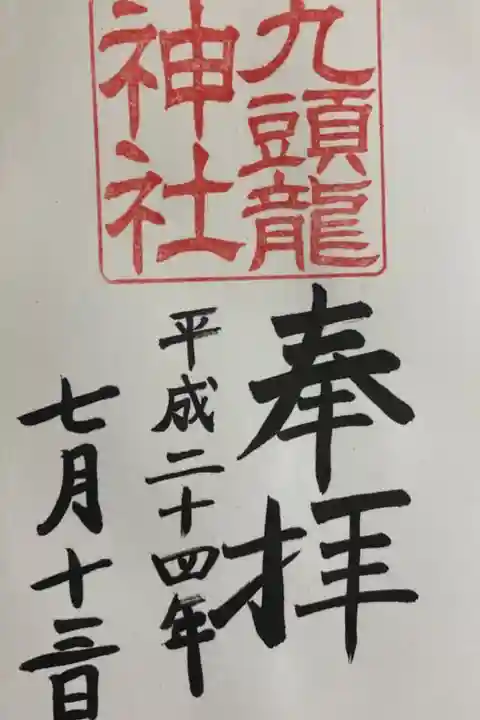 九頭龍
神社
奉拝
平成二十四年
七月十三日